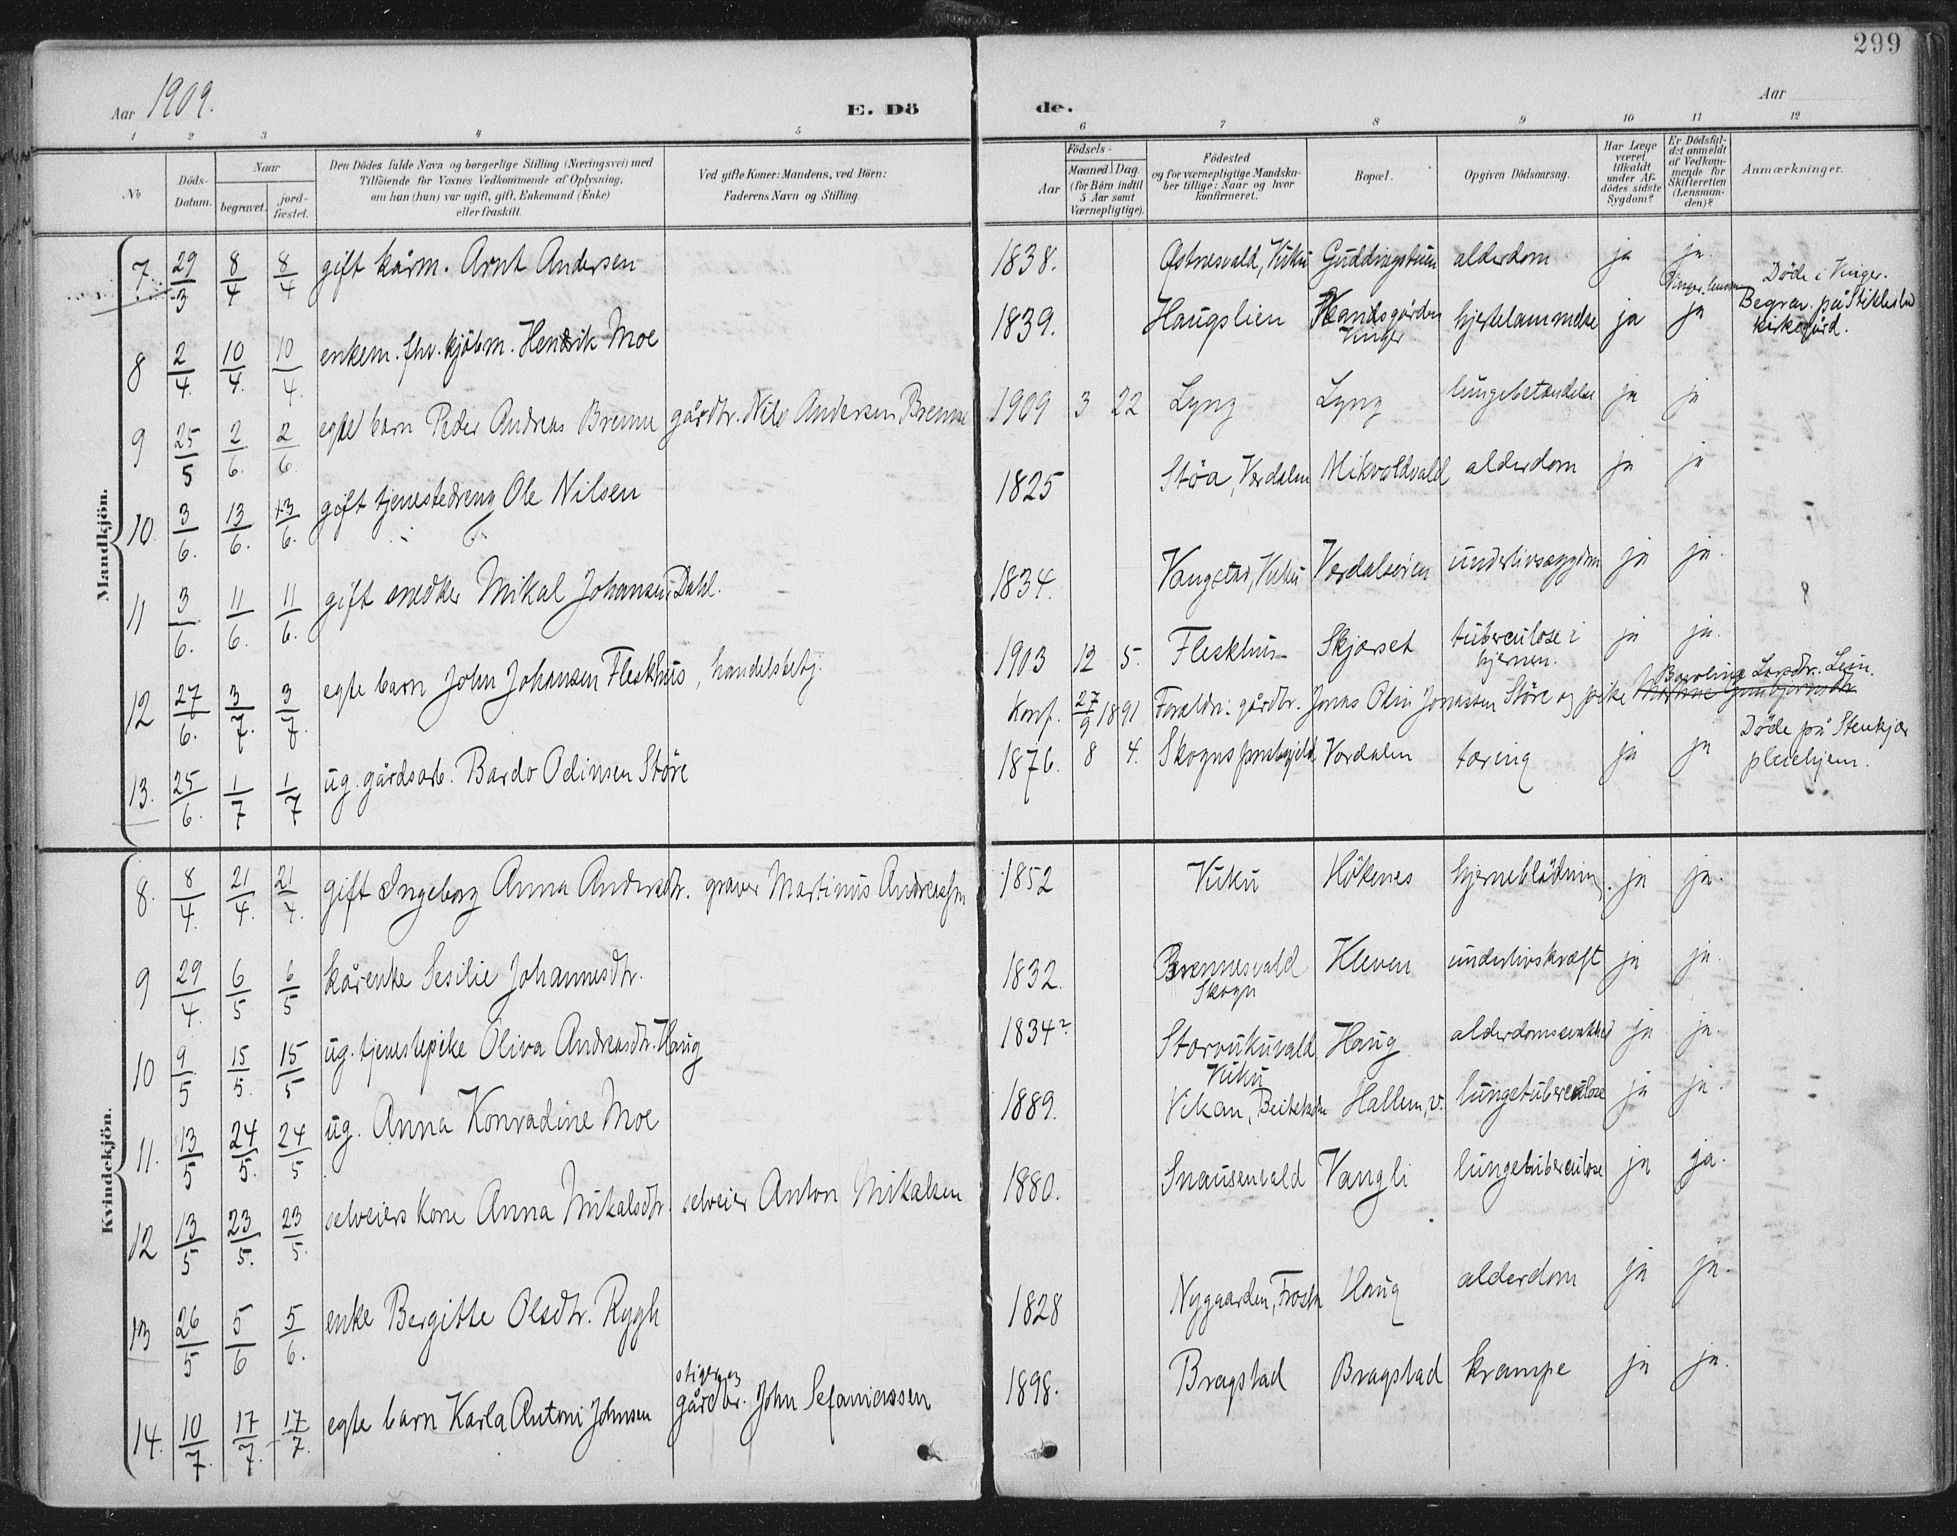 299
Aar 1909.
E. Dö
de.
Aar
1 2 3 4 5 6 7 8 9 10 11 12
No
Döds-Datum.
Naar
begravet.
jord-fæstet.
Den Dödes fulde Navn og borgerlige Stilling (Næringsvei) med
Tilföiende for Voxnes Vedkommende af Oplysning,
om han (hun) var ugift, gift, Enkemand (Enke)
eller fraskilt.
Ved gifte Koner: Mandens, ved Börn:
Faderens Navn og Stilling.
Aar
Födsels-
Maaned Dag
(for Börn indtil
5 Aar samt
Værnepligtige).
Födested
og for værnepligtige Mandska-
ber tillige: Naar og hvor
konfirmeret.
Bopæl.
Opgiven Dödsaarsag.
Har Læge
været
tilkaldt
under Af-
dödes sidste
Sygdom?
Er Dödsfal-
det anmeldt
af Vedkom-
mende for
Skifteretten
(Lensman-
den)?
Anmærkninger.
Mandkjön.
7 29/3 8/4 8/4 gift kårm. Arnt Andersen 1838. Östnesvald, Vuku Guddingstuen alderdom ja ja. Döde i Vinger.
8 2/4 10/4 10/4 enkem. fhv. kjöbm. Hendrik Moe 1839. Haugslien Vinger hjertelammelse ja ja Begrav. på Stiklestad
kirkegård.
9 25/5 2/6 2/6 egte barn Peder Andreas Brenne gårdbr. Nils Andersen Brenne 1909 3 22 Lyng Lyng lungebetændelse ja ja
10. 3/6. 13/6. 13/6. gift tjenestedreng Ole Nilsen 1825 Stöa, Værdalen Mikvoldvald alderdom ja ja
11 3/6. 11/6. 11/6. gift snedker Mikal Johansen Dahl. 1834. Vangstad, Vuku Værdalsören underlivssygdom ja ja.
12 27/6. 3/7. 3/7. egte barn John Johansen Fleskhus, handelsbetj. 1903 12 5. Fleskhus Skjørset tuberculose i
hjernen. ja ja.
Konf. 27/9 1891 Foreldr.: gårdbr. Jonas Odin Jonassen Störe og pike Lein.
13. 25/6. 1/7 1/7 ug. gårdsarb. Bardo Odinsen Störe 1876. 8 4. Skogns prestegjeld Værdalen tæring ja ja Döde på Stenkjær
pleiehjem.
Kvindekjön.
8. 8/4. 21/4. 21/4. gift Ingeborg Anna Andersdtr. graver Martinus Andreassen 1852 Vuku Hökenes hjerneblödning. ja ja.
9 29/4. 6/5 6/5 kårenke Sesilie Johannesdtr. 1832. Brennesvald
Skogn Kleven underlivskræft ja ja.
10 9/5 15/5. 15/5 ug. tjenestepike Oliva Andreasdtr. Haug 1834? Storvukuvald
Vuku Haug alderdomssvakhed ja ja.
11. 13/5 24/5. 24/5 ug. Anna Konradine Moe 1889. Vikan, Beitstaden Hallem, v. lungetuberculose ja ja.
12 13/5 23/5. 23/5. selveiers kone Anna Mikalsdtr. selveier Anton Mikalsen 1880. Snausenvald Vangli lungetuberculose ja ja.
13 26/5 5/6 5/6. enke Bergitte Olsdtr. Rygh 1828 Nygaarden, Frosta Haug alderdom ja ja.
14. 10/7. 17/7. 17/7. egte barn Karla Antoni Johnsen stiger og
gårdbr. John Sefaniassen 1898. Bragstad Bragstad krampe ja ja.